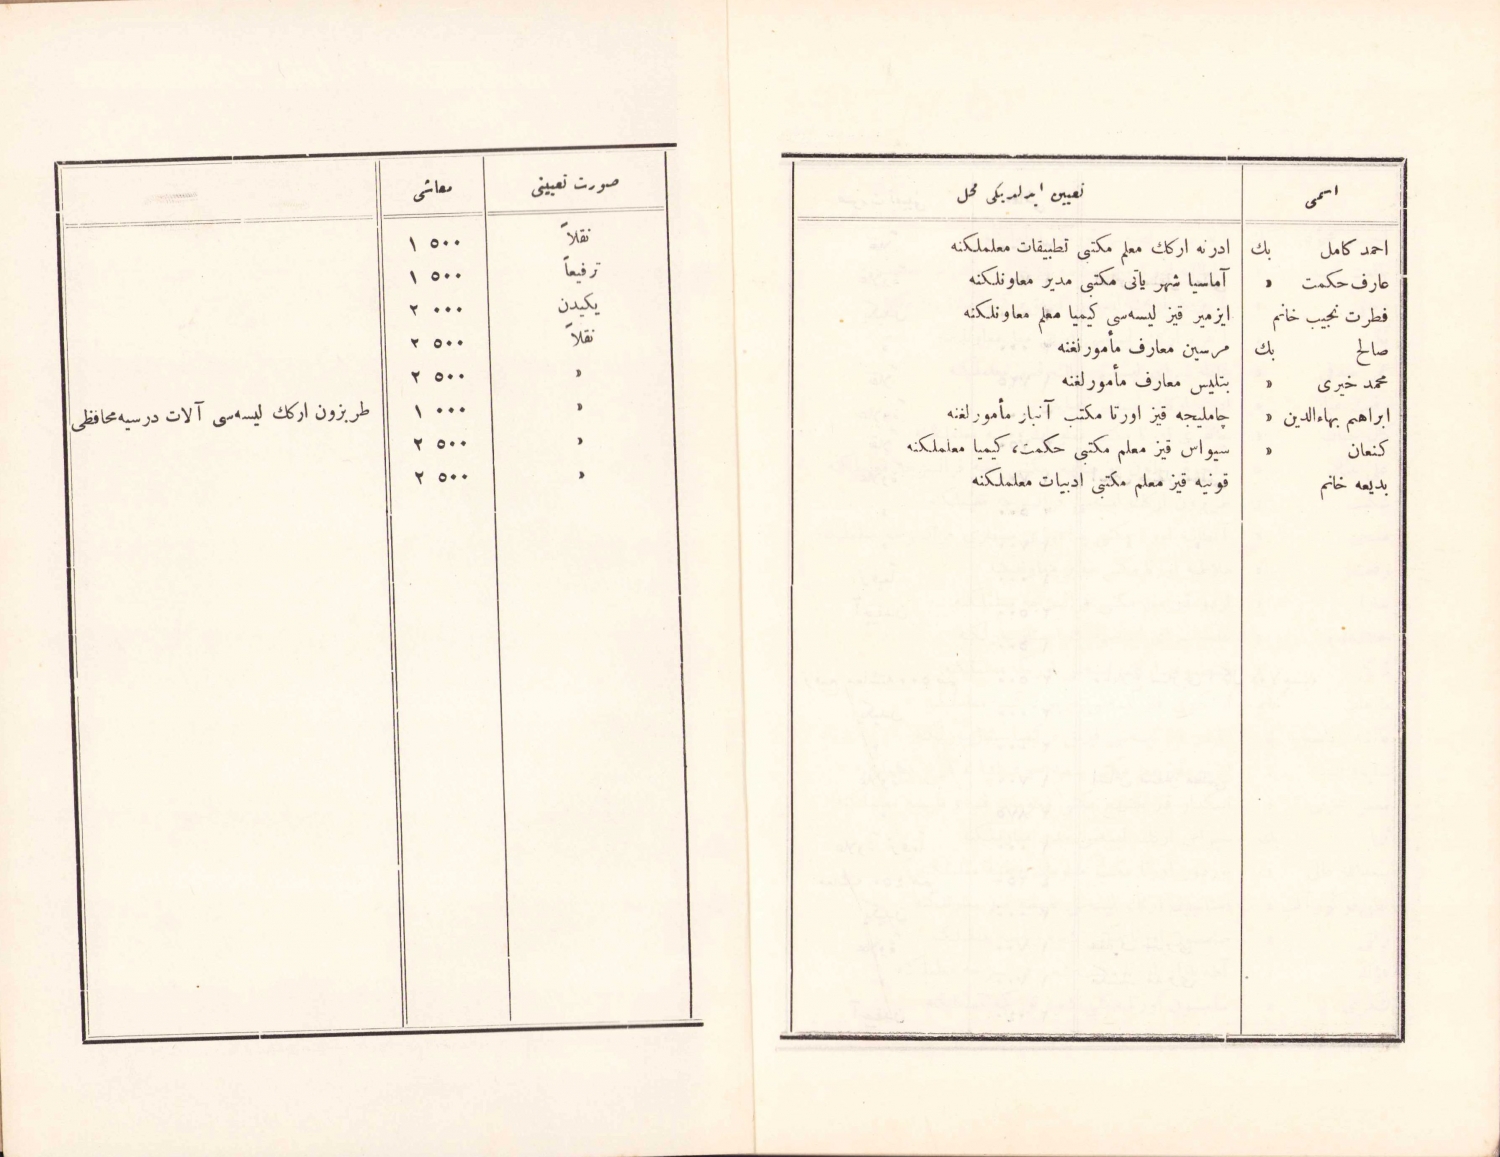 اسمی	تعیین ایدلدیکی محل	صورت تعیینی	معاشی
احمد کامل بك	ادرنه ارکك معلم مکتبی تطبیقات معلملکنه	نقلاً	١ ٥٠٠
عارف حکمت »	آماسیا شهر یاتی مکتبی مدیر معاونلکنه	ترفیعاً	١ ٥٠٠
فطرت نجیب خانم	ایزمیر قیز لیسه‌سی کیمیا معلم معاونلکنه	یکیدن	٢ ٠٠٠
صالح بك	مرسین معارف مأمورلغنه	نقلاً	٢ ٥٠٠
محمد خیری »	بتلیس معارف مأمورلغنه	»	٢ ٥٠٠
ابراهیم بهاءالدین »	چاملیجه قیز اورتا مکتب آنبار مأمورلغنه	»	١ ٠٠٠	طربزون ارکك لیسه‌سی آلات درسیه محافظی
کنعان »	سیواس قیز معلم مکتبی حکمت، کیمیا معلملکنه	»	٢ ٥٠٠
بدیعه خانم	قونیه قیز معلم مکتبی ادبیات معلملکنه	»	٢ ٥٠٠